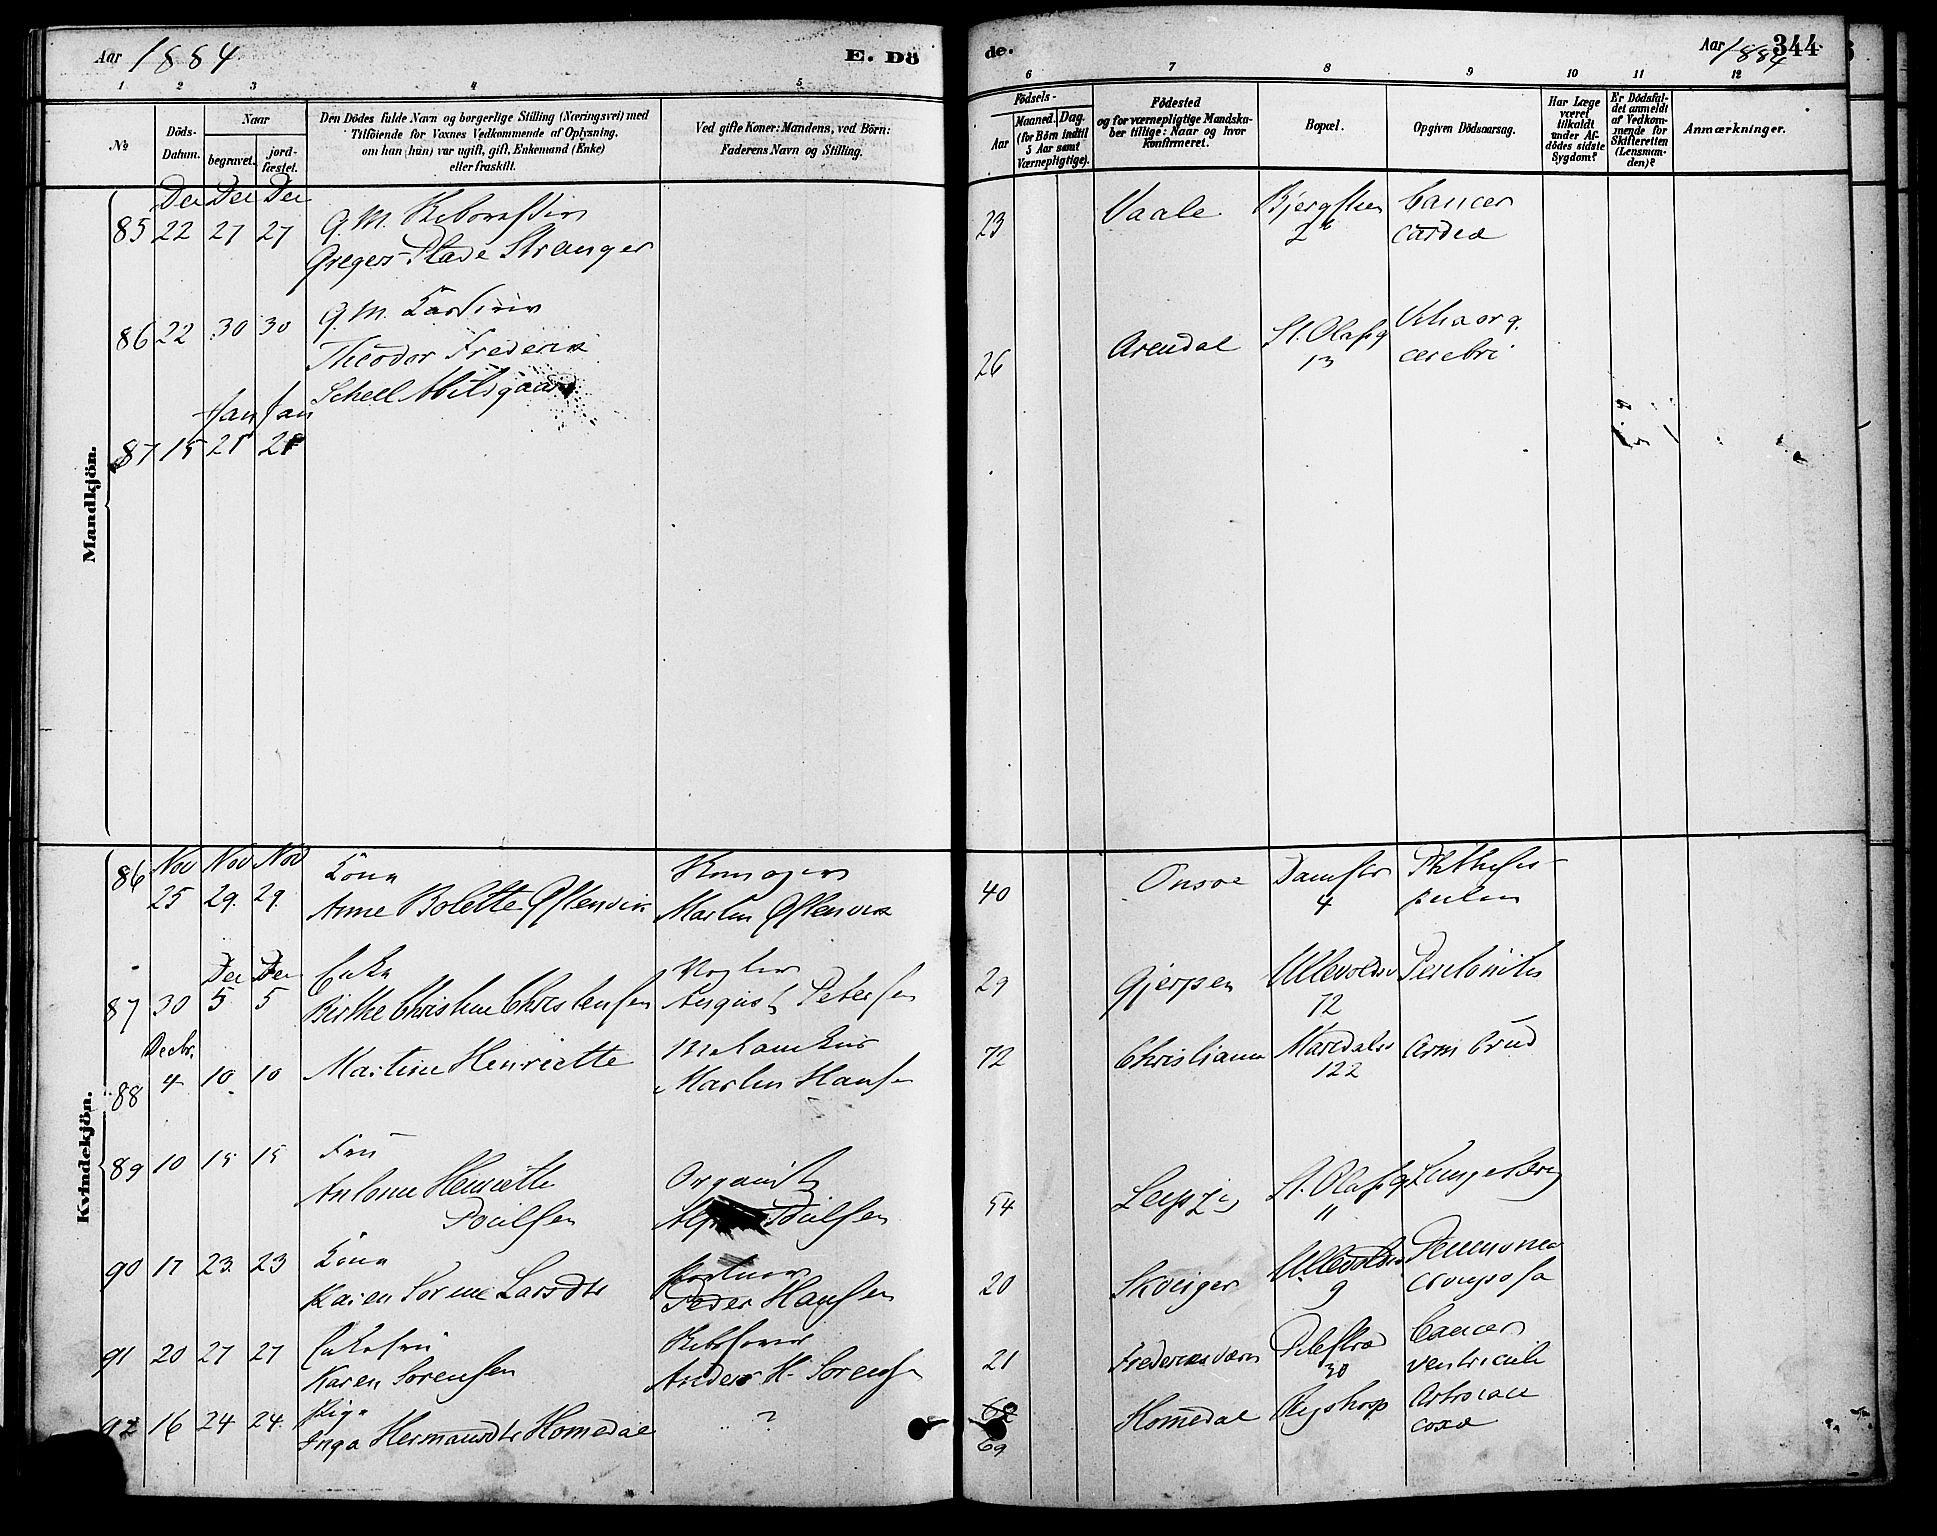 Aar 1884
E. Dö
de.
Aar 1884
344
1 2 3 4 5 6 7 8 9 10 11 12
№
Döds-
Datum.
Naar
begravet.
jord-
fæstet.
Den Dödes fulde Navn og borgerlige Stilling (Næringsvei) med
Tilföiende for Voxnes Vedkommende af Oplysning,
om han (hun) var ugift, gift, Enkemand (Enke)
eller fraskilt.
Ved gifte Koner: Mandens, ved Börn:
Faderens Navn og Stilling.
Födsels-
Aar
Maaned. Dag.
(for Börn indtil
5 Aar samt
Værnepligtige).
Födested
og for værnepligtige Mandska-
ber tillige: Naar og hvor
konfirmeret.
Bopæl.
Opgiven Dödsaarsag.
Har Læge
været
tilkaldt
under Af-
dödes sidste
Sygdom?
Er Dödsfal-
det anmeldt
af Vedkom-
mende for
Skifteretten
(Lensman-
den)?
Anmærkninger.
Mandkjön.
Dec Dec Dec
85 22 27 27 G. M.
Gregers Stranger
23 Vaale 2 Cancer
cardiæ
86 22 30 30 G. M.
Theodor Frederik
Schell Abilsgaard
26 Arendal St. Olafsg
13 cerebri
Jan Jan
87 15 21 21
Kvindekjön.
86 Nov Nov Nov Kona
25 29. 29. Anne Bolette Martin
40 Onsøe Damstr
4
Dec Dec Enke
87 30 5 5 Birthe Christine Christensen August Petersen
29 Gjerpen Ullevoldsv Peritonitis
72
Decbr.
88 4 10 10 Martine Henriette
Martin Hansen
72 Christiania Maridalsv
122
89 10 15 15 Fru
Antonie Henriette Organist
Poulsen Poulsen
54 Leipzig St. Olafsg
11
90 17 23. 23 Kona
Karen Larsdtr Peder Hansen
20 Ullevoldsv
9 crouposa
91 20 27 27
Karen Sorensen Anders H. Sorensen
21 Frederiksværn Pilestræd Cancer
30 ventriculi
92 16 24 24. Pige
Inga Hermansdtr Homedal ?
69 Homedal Rigshosp
coxæ